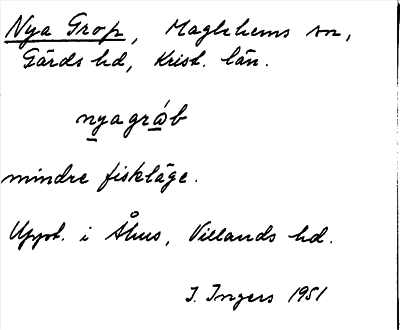 Nya Grop, Maglehems sn,
Gärds hd, Krist. län.
nyagråb
mindre fiskläge.
Uppt. i Åhus, Villands hd.
I. Ingers 1951